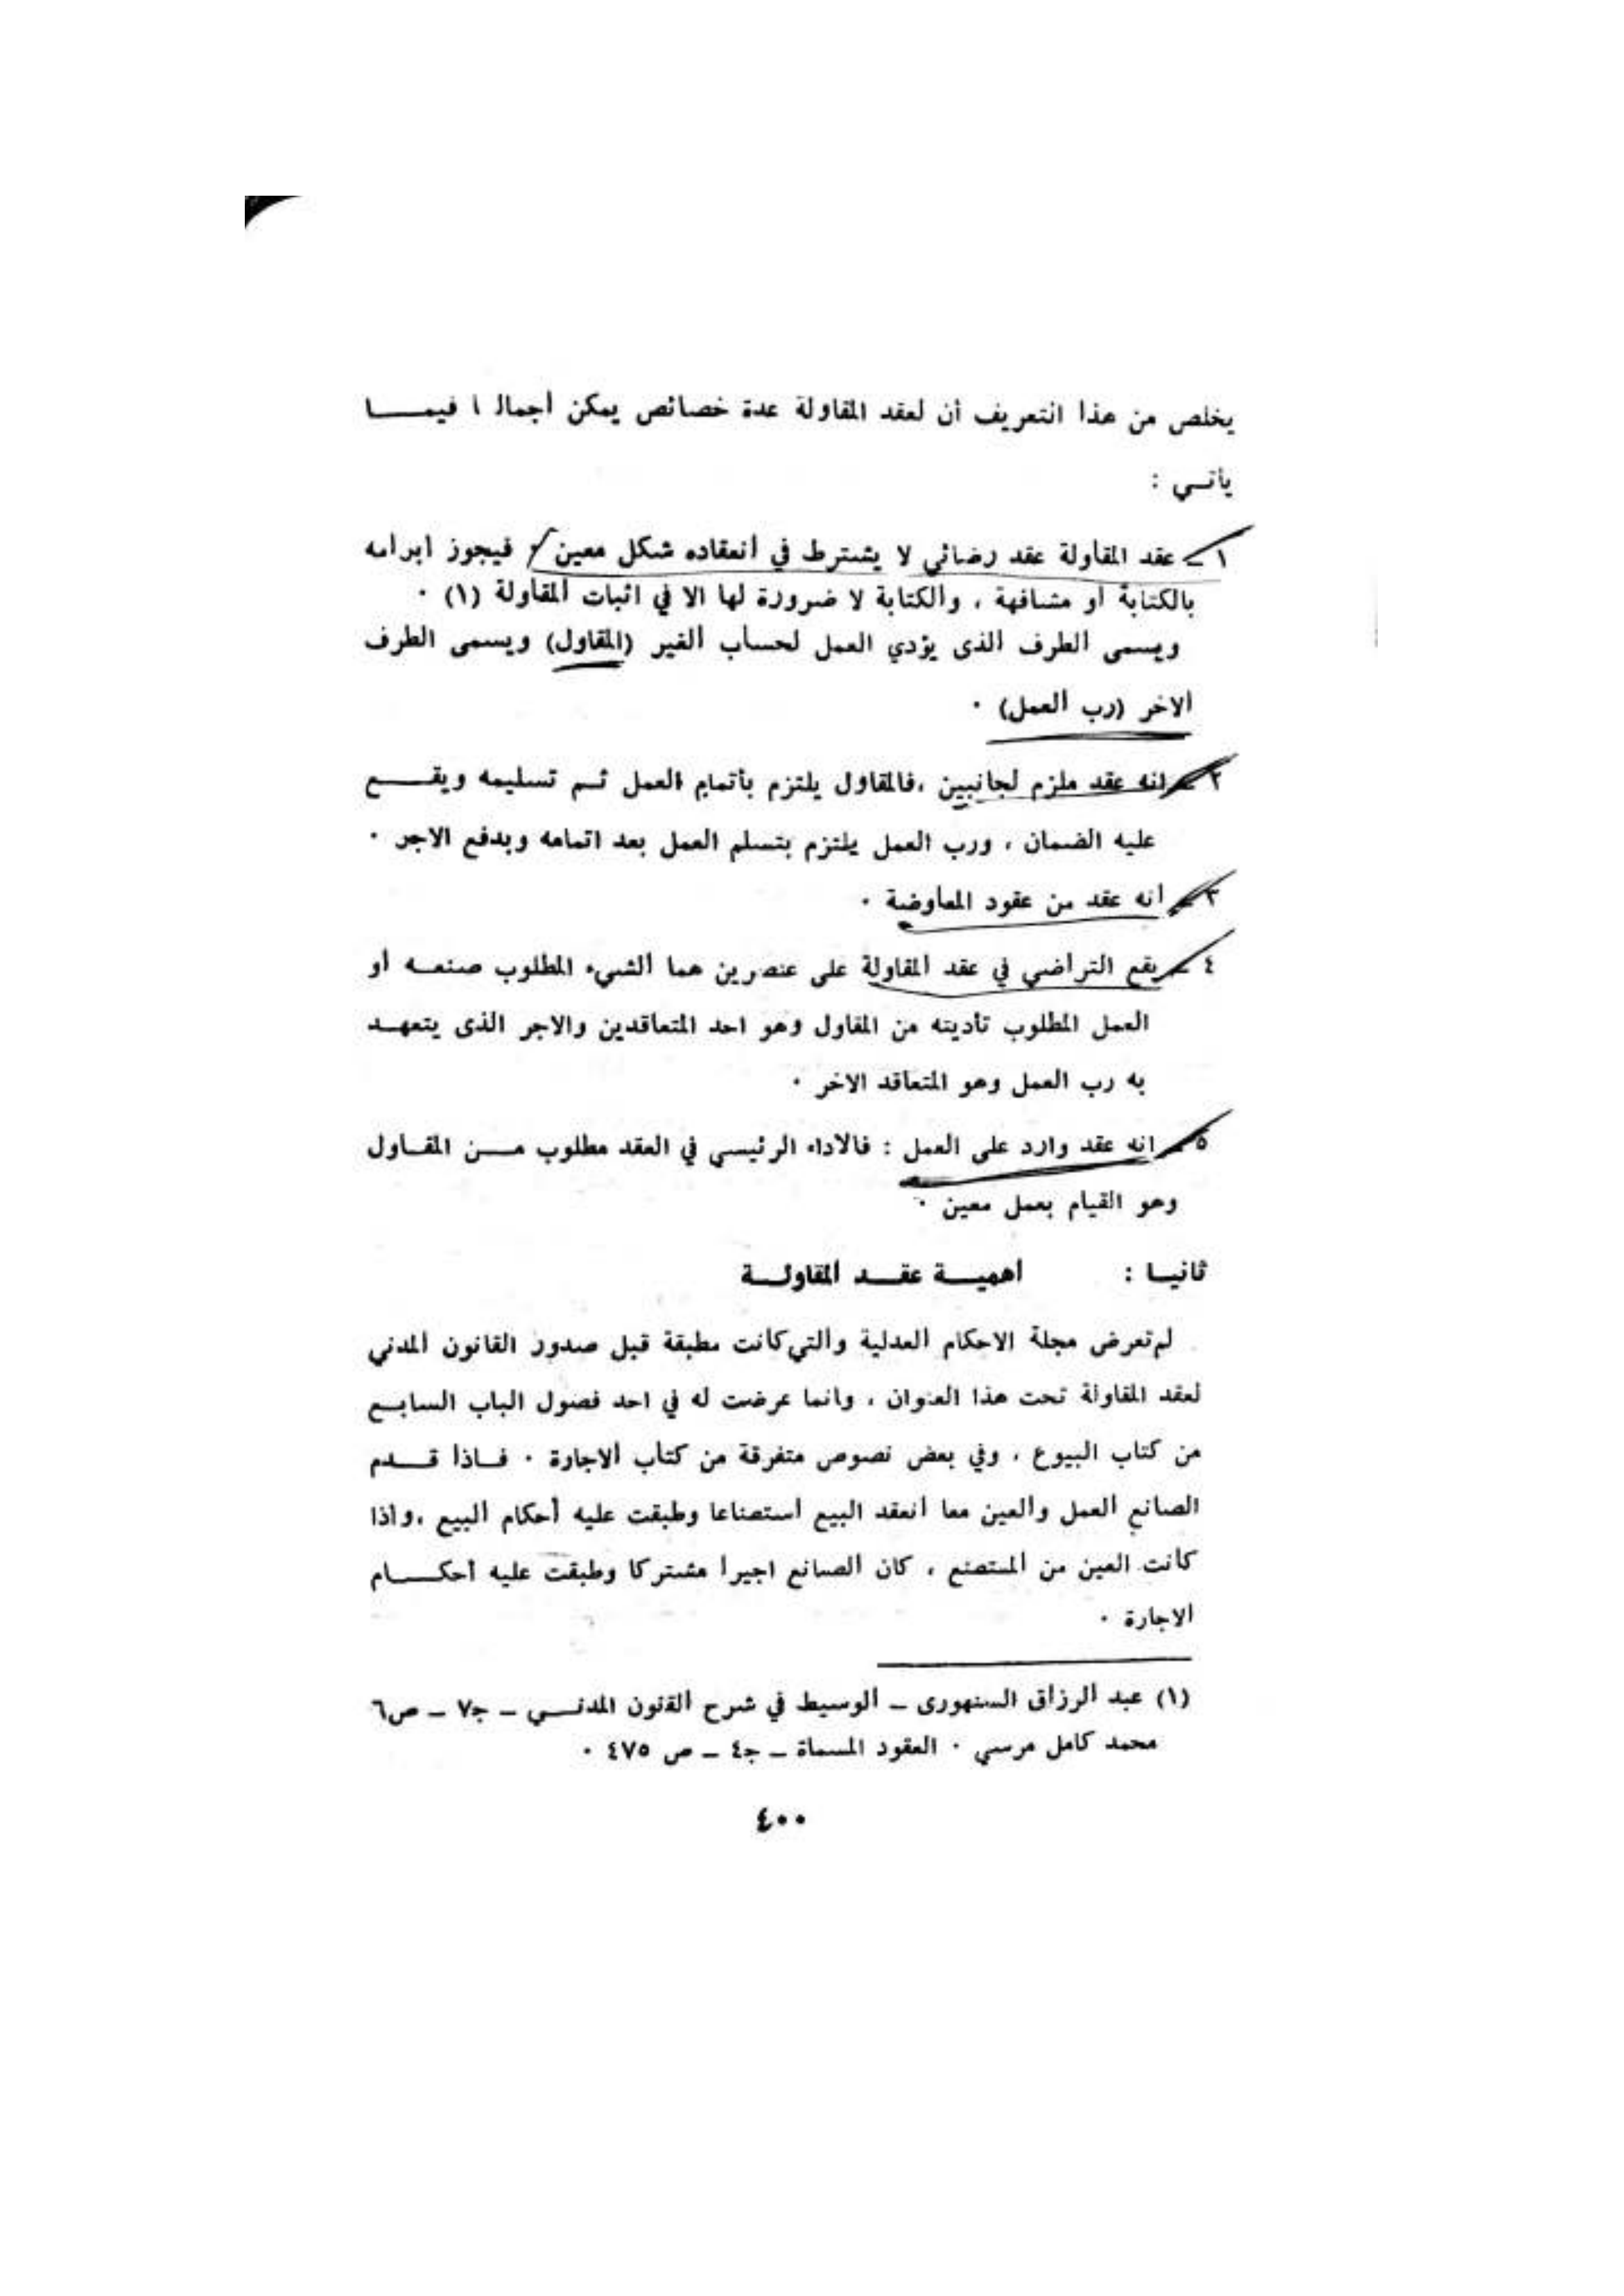 يخلص من هذا التعريف أن لعقد المقاولة عدة خصائص يمكن أجمالـ ا فيمـــا
يأتـي :
١ ـ عقد المقاولة عقد رضائي لا يشترط في أنعقاده شكل معين ، فيجوز ابرامه
بالكتابة أو مشافهة ، والكتابة لا ضرورة لها الا في اثبات المقاولة (١) ٠
ويسمى الطرف الذى يؤدي العمل لحساب الغير (المقاول) ويسمى الطرف
الاخر (رب العمل) ٠
٢ ـ انه عقد ملزم لجانبين ،فالمقاول يلتزم بأتمام العمل ثـم تسليمه ويقـــع
عليه الضمان ، ورب العمل يلتزم بتسلم العمل بعد اتمامه وبدفع الاجر ٠
٣ ـ أنه عقد من عقود المعاوضة ٠
٤ ـ يقع التراضي في عقد المقاولة على عنصرين هما الشيء المطلوب صنعـه أو
العمل المطلوب تأديته من المقاول وهو احد المتعاقدين والاجر الذى يتعهـد
به رب العمل وهو المتعاقد الاخر ٠
٥ ـ انه عقد وارد على العمل : فالاداء الرئيسي في العقد مطلوب مــن المقـاول
وهو القيام بعمل معين ٠
ثانيـا : أهميــة عقــد المقاولــة
لم تعرض مجلة الاحكام العدلية والتي كانت مطبقة قبل صدور القانون المدني
لعقد المقاولة تحت هذا العنوان ، وانما عرضت له في احد فصول الباب السابـع
من كتاب البيوع ، وفي بعض نصوص متفرقة من كتاب الاجارة ٠ فـاذا قــدم
الصانع العمل والعين معا أنعقد البيع أستصناعا وطبقت عليه أحكام البيع ،واذا
كانت العين من المستصنع ، كان الصانع اجيرا مشتركا وطبقت عليه أحكـــام
الاجارة ٠
(١) عبد الرزاق السنهورى ـ الوسيط في شرح القنون المدنــي ـ جـ٧ ـ ص٦
محمد كامل مرسي ٠ العقود المسماة ـ جـ٤ ـ ص ٤٧٥ ٠
٤٠٠